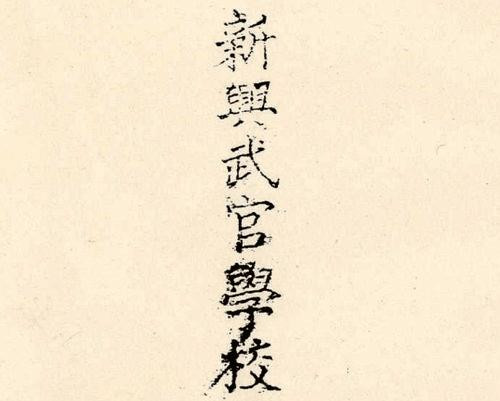 新興武官學校